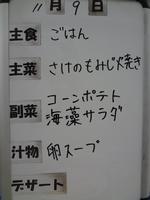 11月9日
主食 ごはん
主菜 さけのもみじ焼き
副菜 コーンポテト
海藻サラダ
汁物 卵スープ
デザート